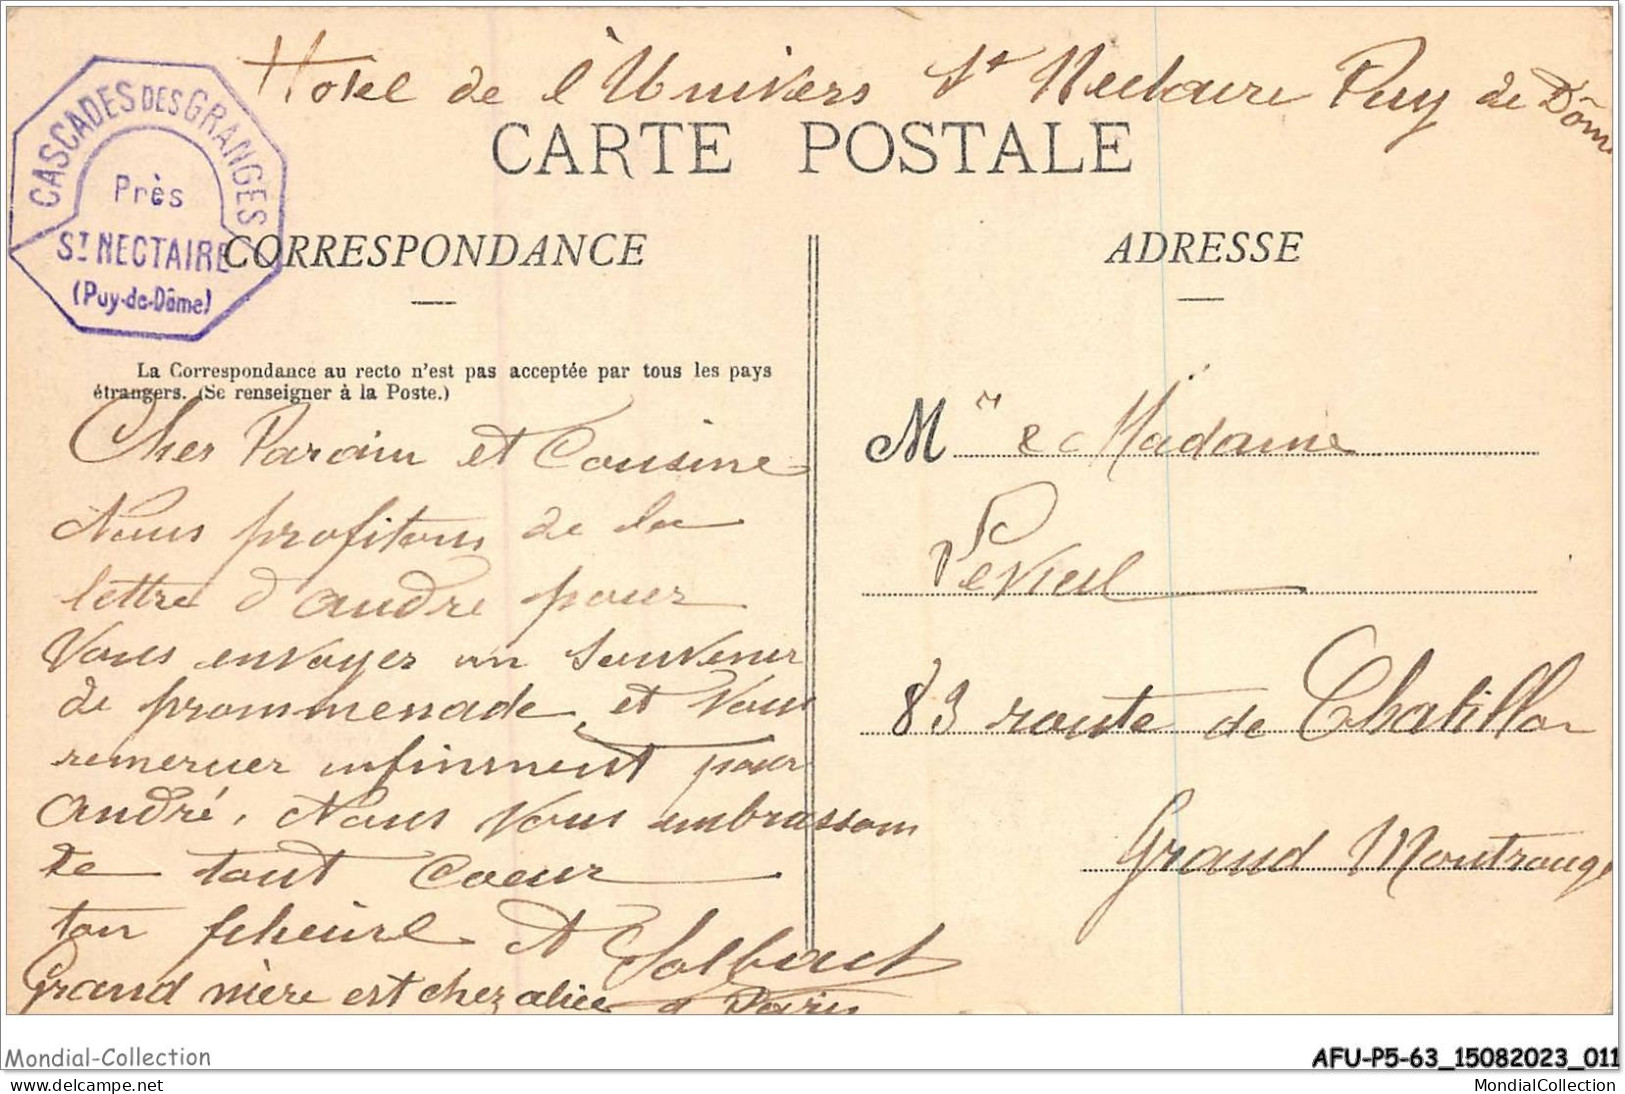 Hotel de l'Univers St Nectaire Puy de Dôme
CASCADES DES GRANGES
Près
ST NECTAIRE
(Puy-de-Dôme)
CARTE POSTALE
CORRESPONDANCE
ADRESSE
La Correspondance au recto n'est pas acceptée par tous les pays
étrangers. (Se renseigner à la Poste.)
Cher Parain et Cousine
Nous profitons de la
lettre d'andré pour
Vous envoyer un Souvenir
de prommenade et Vous
remercier infiniment pour
andré, Nous Vous embrassons
de tout Coeur
ton
Grand mère est chez alice a Paris
M r & Madame
83 route de Chatillon
Grand Montrouge
Mondial-Collection
AFU-P5-63_15082023_011
MondialCollection